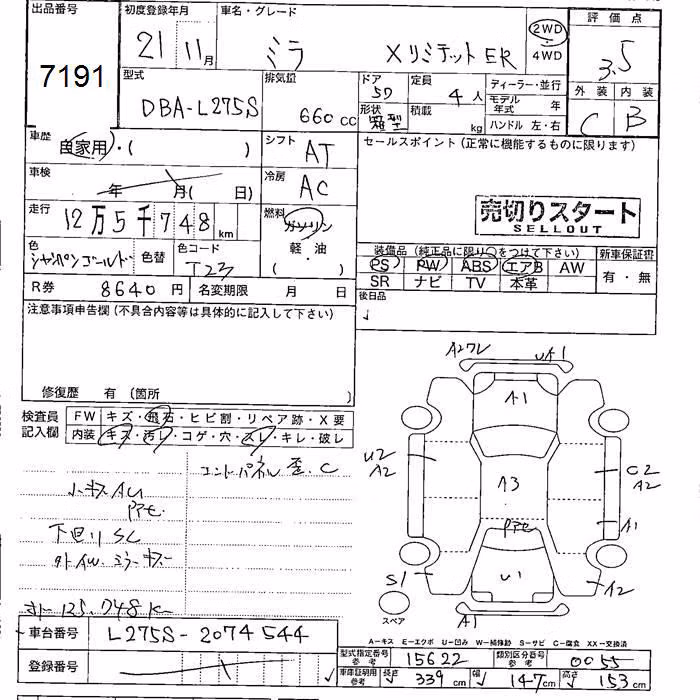 出品番号
7191
初度登録年月
21年11月
車名・グレード
ミラ XリミテットER
2WD
4WD
評価点
3.5
外装 内装
C B
型式
DBA-L275S
排気量
660cc
ドア
5D
定員
4人
形状
箱型
積載
kg
ディーラー・並行
モデル年式 年
ハンドル 左・右
車歴
自家用・( )
シフト
AT
車検
年 月( 日)
冷房
AC
走行
12万5千748km
燃料
ガソリン
軽・油
( )
色
シャンペンゴールド
色替
色コード
T23
R券 8640円
名変期限 月 日
セールスポイント(正常に機能するものに限ります)
売切りスタート
SELLOUT
装備品(純正品に限り○をつけて下さい)
新車保証書
PS PW ABS エアB AW
有・無
SR ナビ TV 本革
後日品
注意事項申告欄(不具合内容等は具体的に記入して下さい)
修復歴 有(箇所 )
検査員記入欄
FW キズ・飛石・ヒビ割・リペア跡・X要
内装 キズ・汚レ・コゲ・穴・スレ・キレ・破レ
コントパネル歪.C
小キズAU
下回りSC
外イW.ミラーキズ
オト125.748K
A1
U2
A2
A3
C2
A2
A1
S1
U1
A2
スペア
A1
A-キズ E-エクボ U-凹み W-補修跡 S-サビ C-腐食 XX-交換済
車台番号 L275S-2074544
登録番号
型式指定番号参考 15622
類別区分番号参考 0055
車庫証明用参考 長さ 339cm 幅 147cm 高さ 153cm